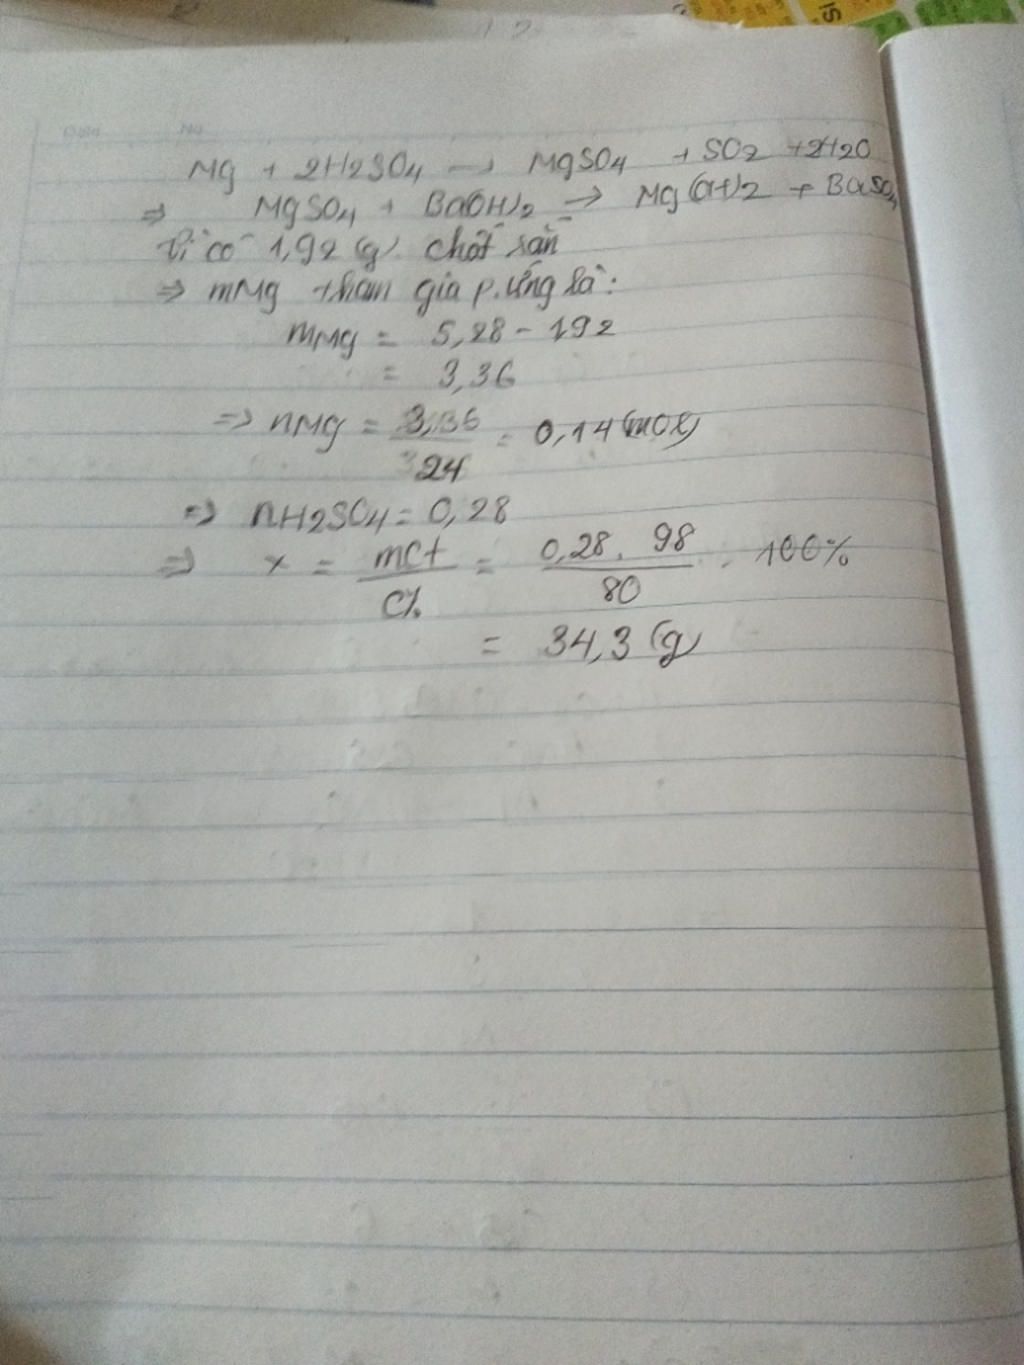 Mg + 2H2SO4 → MgSO4 + SO2 + 2H2O
⇒ MgSO4 + Ba(OH)2 → Mg(OH)2 + BaSO4
Vì có 1,92 (g) chất rắn
⇒ mMg tham gia p.ứng là:
mMg = 5,28 - 192
= 3,36
⇒ nMg = 3,36 / 24 = 0,14 (mol)
⇒ nH2SO4 = 0,28
⇒ x = mct / C% = 0,28. 98 / 80 . 100%
= 34,3 (g)